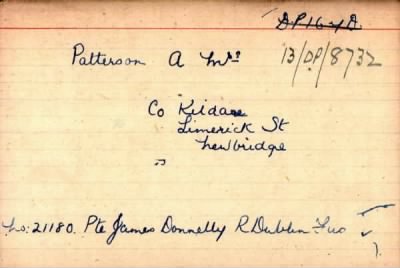 DP16-4D.
Patterson A Mrs 13/DP/8732
Co Kildare
Limerick St
Newbridge
"
No: 21180. Pte James Donnelly R Dublin Fus